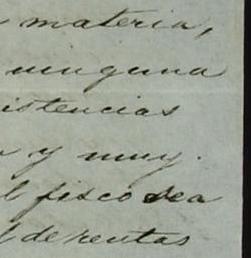 materia,
ninguna
istencias
y muy.
l fisco sea
de rentas